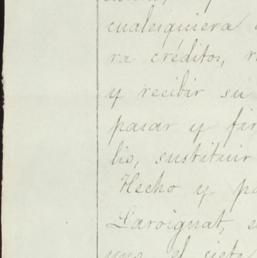 cualesquiera
ra créditos, r
y recibir su
pasar y fir
lis, sustituir
Hecho y pa
Laroignat, e